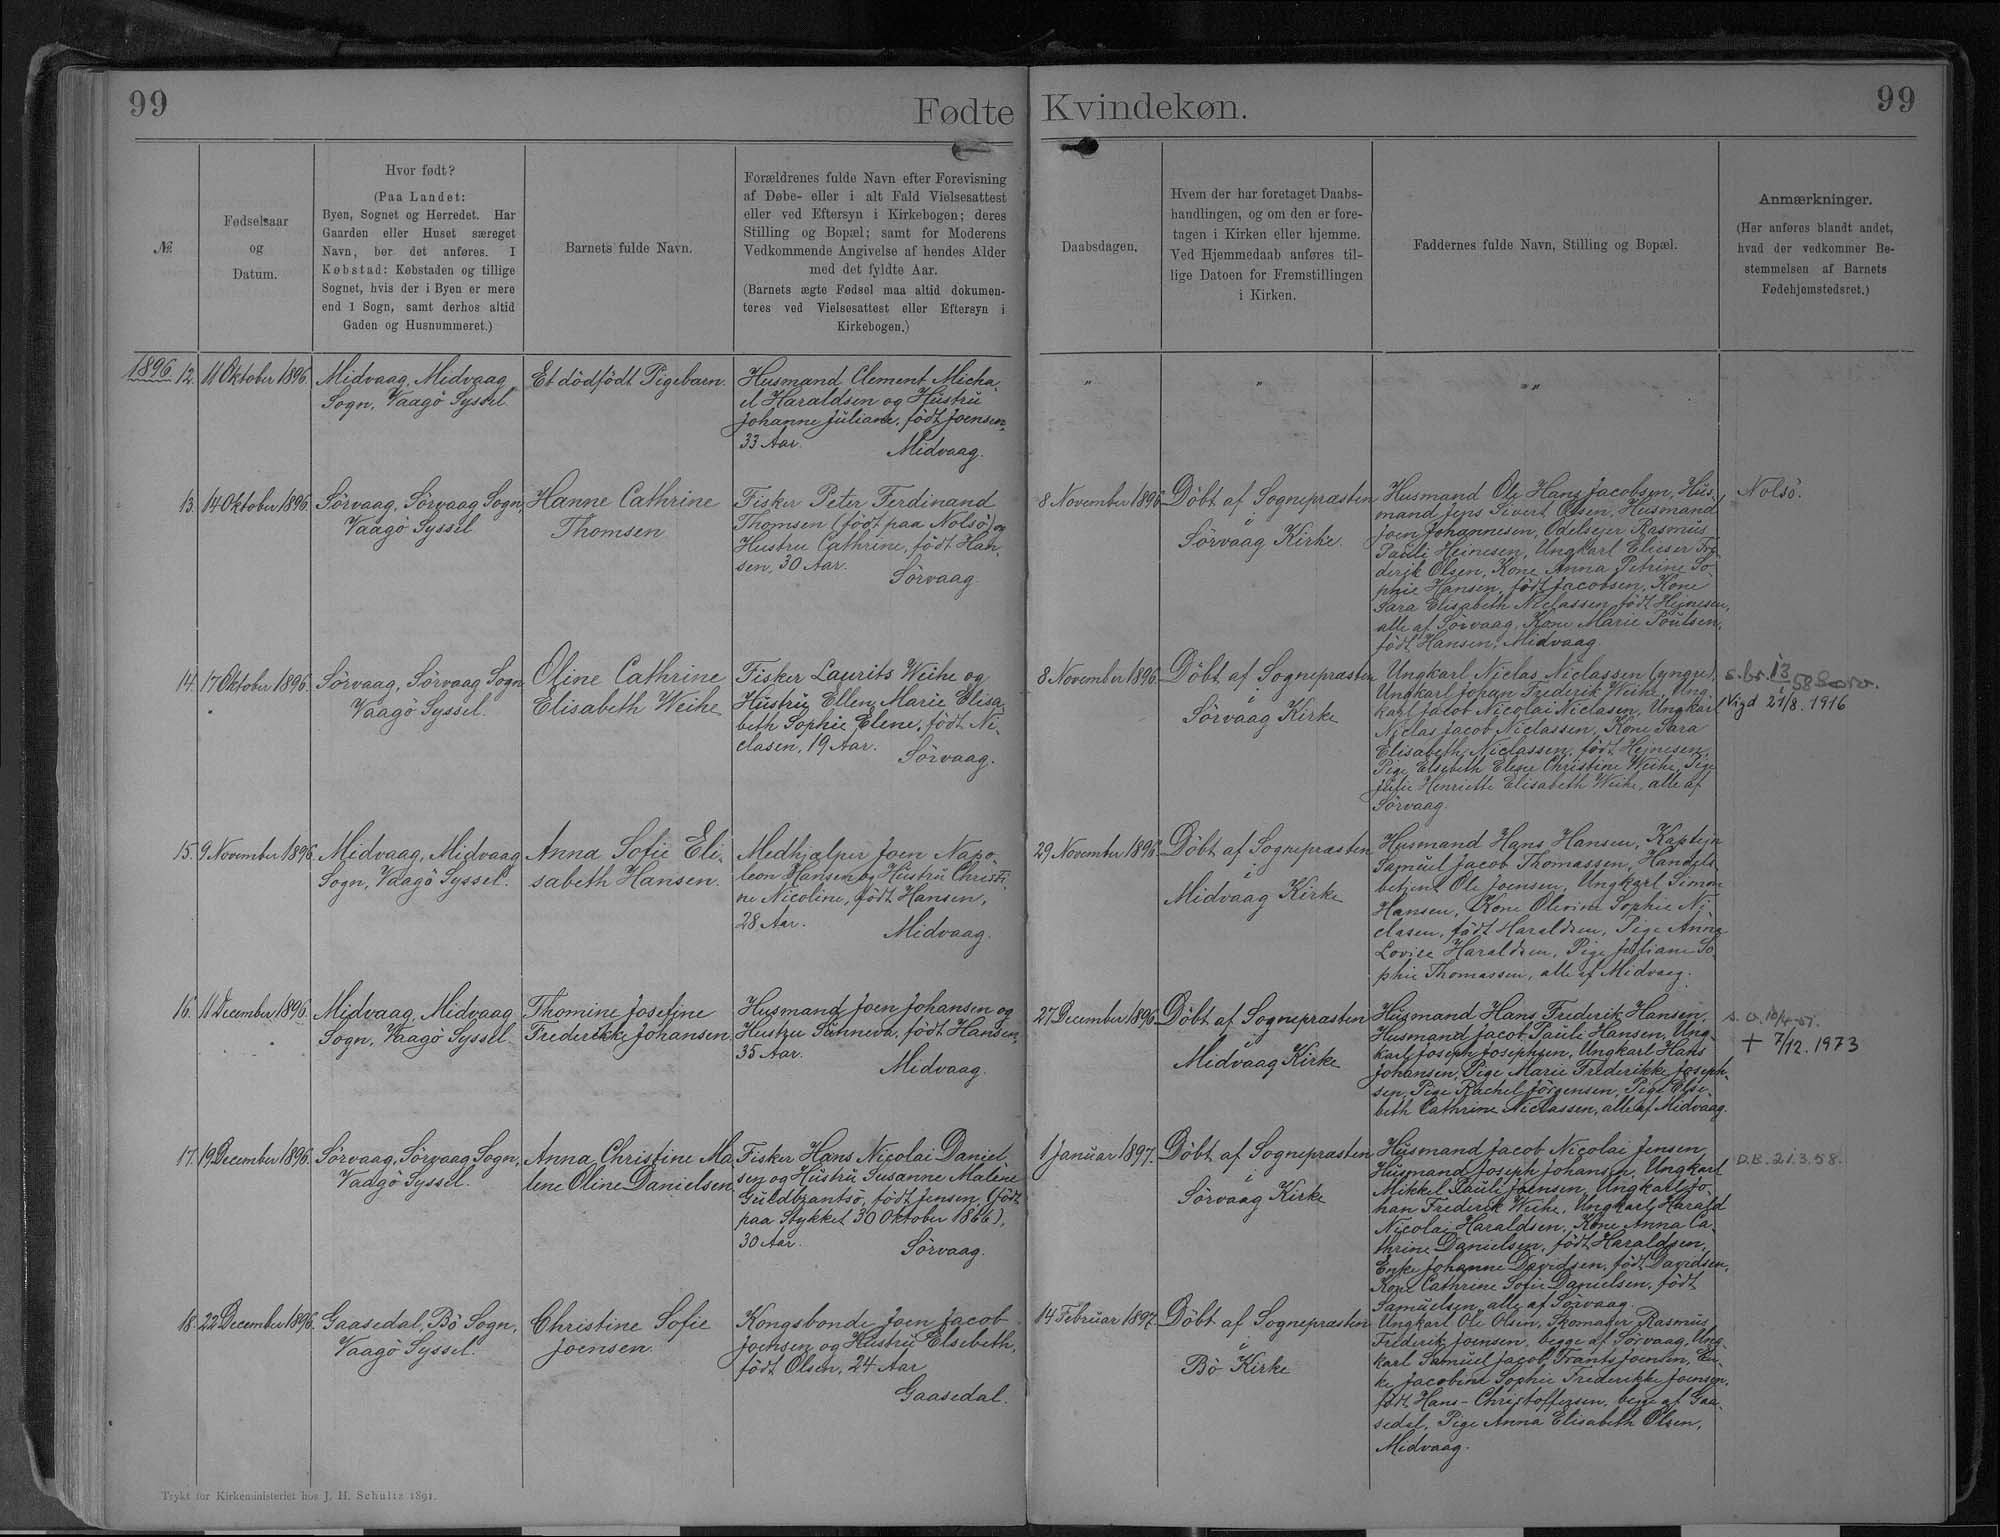 99
Fødte
Kvindekøn.
99
№
Fødselsaar
og
Datum.
Hvor født?
(Paa Landet:
Byen, Sognet og Herredet. Har
Gaarden eller Huset særeget
Navn, bør det anføres. I
Købstad: Købstaden og tillige
Sognet, hvis der i Byen er mere
end 1 Sogn, samt derhos altid
Gaden og Husnummeret.)
Barnets fulde Navn.
Forældrenes fulde Navn efter Forevisning
af Døbe- eller i alt Fald Vielsesattest
eller ved Eftersyn i Kirkebogen; deres
Stilling og Bopæl; samt for Moderens
Vedkommende Angivelse af hendes Alder
med det fyldte Aar.
(Barnets ægte Fødsel maa altid dokumen-
teres ved Vielsesattest eller Eftersyn i
Kirkebogen.)
Daabsdagen.
Hvem der har foretaget Daabs-
handlingen, og om den er fore-
tagen i Kirken eller hjemme.
Ved Hjemmedaab anføres til-
lige Datoen for Fremstillingen
i Kirken.
Faddernes fulde Navn, Stilling og Bopæl.
Anmærkninger.
(Her anføres blandt andet,
hvad der vedkommer Be-
stemmelsen af Barnets
Fødehjemstedsret.)
1896
12.
11 Oktober 1896.
Midvaag, Midvaag
Sogn, Vaagö Syssel.
Et dödfödt Pigebarn.
Husmand Clement Micha-
el Haraldsen og Hustrü
Johanne Juliane, födt Joensen,
33 Aar.
Midvaag.
"
"
" "
13.
14 Oktober 1896.
Sörvaag, Sörvaag Sogn,
Vaagö Syssel
Hanne Cathrine
Thomsen
Fisker Peter Ferdinand
Thomsen (födt paa Nolsö) og
Hustru Cathrine, födt Han-
sen, 30 Aar.
Sörvaag.
8 November 1896
Döbt af Sognepræsten
i
Sörvaag Kirke.
Husmand Ole Hans Jacobsen, Hüs-
mand Jens Sivert Olsen, Husmand
Joen Johannesen, Odelsejer Rasmus
Pauli Heinesen, Ungkarl Elieser Fre-
derik Olsen, Kone Anna Petrine So-
phie Hansen, födt Jacobsen, Kone
Sara Elisabeth Niclassen, födt Hejnesen,
alle af Sörvaag, Kone Marie Poulsen,
födt Hansen, Midvaag.
Nolsö.
14.
17 Oktober 1896.
Sörvaag, Sörvaag Sogn
Vaagö Syssel.
Oline Cathrine
Elisabeth Weihe
Fisker Laurits Weihe og
Hüstrü Ellen Marie Elisa-
beth Sophie Elene, födt Ni-
clasen, 19 Aar.
Sörvaag.
8 November 1896.
Döbt af Sognepræsten
i
Sörvaag Kirke
Ungkarl Niclas Niclassen (yngre),
Ungkarl Johan Frederik Weihe, Ung-
karl Jacob Nicolai Niclasen, Ungkarl
Niclas Jacob Niclassen, Kone Sara
Elisabeth Niclassen, födt Hejnesen,
Pige Elsebeth Elene Christine Weihe, Pige
Julie Henriette Elisabeth Weihe, alle af
Sörvaag.
Vigd 21/8. 1916
15.
9 November 1896.
Midvaag, Midvaag
Sogn, Vaagö Syssel.
Anna Sofie Eli-
sabeth Hansen.
Medhjælper Joen Napo-
leon Hansen og Hüstrü Christi-
ne Nicoline, födt Hansen,
28 Aar.
Midvaag.
29 November 1896.
Döbt af Sognepræsten
i
Midvaag Kirke
Husmand Hans Hansen, Kaptejn
Samüel Jacob Thomassen, Handels-
betjent Ole Joensen, Ungkarl Simon
Hansen, Kone Olevine Sophie Ni-
clasen, födt Haraldsen, Pige Anna
Lovise Haraldsen, Pige Juliane So-
phie Thomassen, alle af Midvaag.
16.
11 December 1896.
Midvaag, Midvaag
Sogn, Vaagö Syssel.
Thomine Josefine
Frederikke Johansen
Husmand Joen Johansen og
Hustru Sunneva, födt Hansen,
35 Aar.
Midvaag.
27 December 1896
Döbt af Sognepræsten
i
Midvaag Kirke
Husmand Hans Frederik Hansen,
Husmand Jacob Pauli Hansen, Ung-
karl Joseph Josephsen, Ungkarl Hans
Johansen, Pige Marie Frederikke Joseph-
sen, Pige Rachel Jörgensen, Pige Else-
beth Cathrine Niclassen, alle af Midvaag.
+ 7/12. 1973
17.
19 December 1896.
Sörvaag, Sörvaag Sogn,
Vaagö Syssel.
Anna Christine Ma-
lene Oline Danielsen
Fisker Hans Nicolai Daniel-
sen og Hüstrü Susanne Malene
Guldbrantsö, födt Jensen (födt
paa Stykket 30 Oktober 1866),
30 Aar.
Sörvaag.
1 Januar 1897.
Döbt af Sognepræsten
i
Sörvaag Kirke
Husmand Jacob Nicolai Jensen,
Husmand Joseph Johansen, Ungkarl
Mikkel Pauli Joensen, Ungkarl Jo-
han Frederik Weihe, Ungkarl Harald
Nicolai Haraldsen, Kone Anna Ca-
thrine Danielsen, födt Haraldsen,
Enke Johanne Davidsen, födt Davidsen,
Kone Cathrine Sofie Danielsen, födt
Samuelsen, alle af Sörvaag.
D.B. 21.3.58.
18.
22 December 1896.
Gaasedal, Bö Sogn,
Vaagö Syssel.
Christine Sofie
Joensen.
Kongsbonde Joen Jacob
Joensen og Hustrü Elsebeth,
födt Olsen, 24 Aar
Gaasedal.
14 Februar 1897.
Döbt af Sognepræsten
i
Bö Kirke
Ungkarl Ole Olsen, Skomager Rasmus
Frederik Joensen, begge af Sörvaag, Ung-
karl Samüel Jacob Frants Joensen, En-
ke Jacobine Sophie Frederikke Joensen,
födt Hans-Christoffersen, begge af Gaa-
sedal, Pige Anna Elisabeth Olsen,
Midvaag.
Trykt for Kirkeministeriet hos J. H. Schultz 1891.